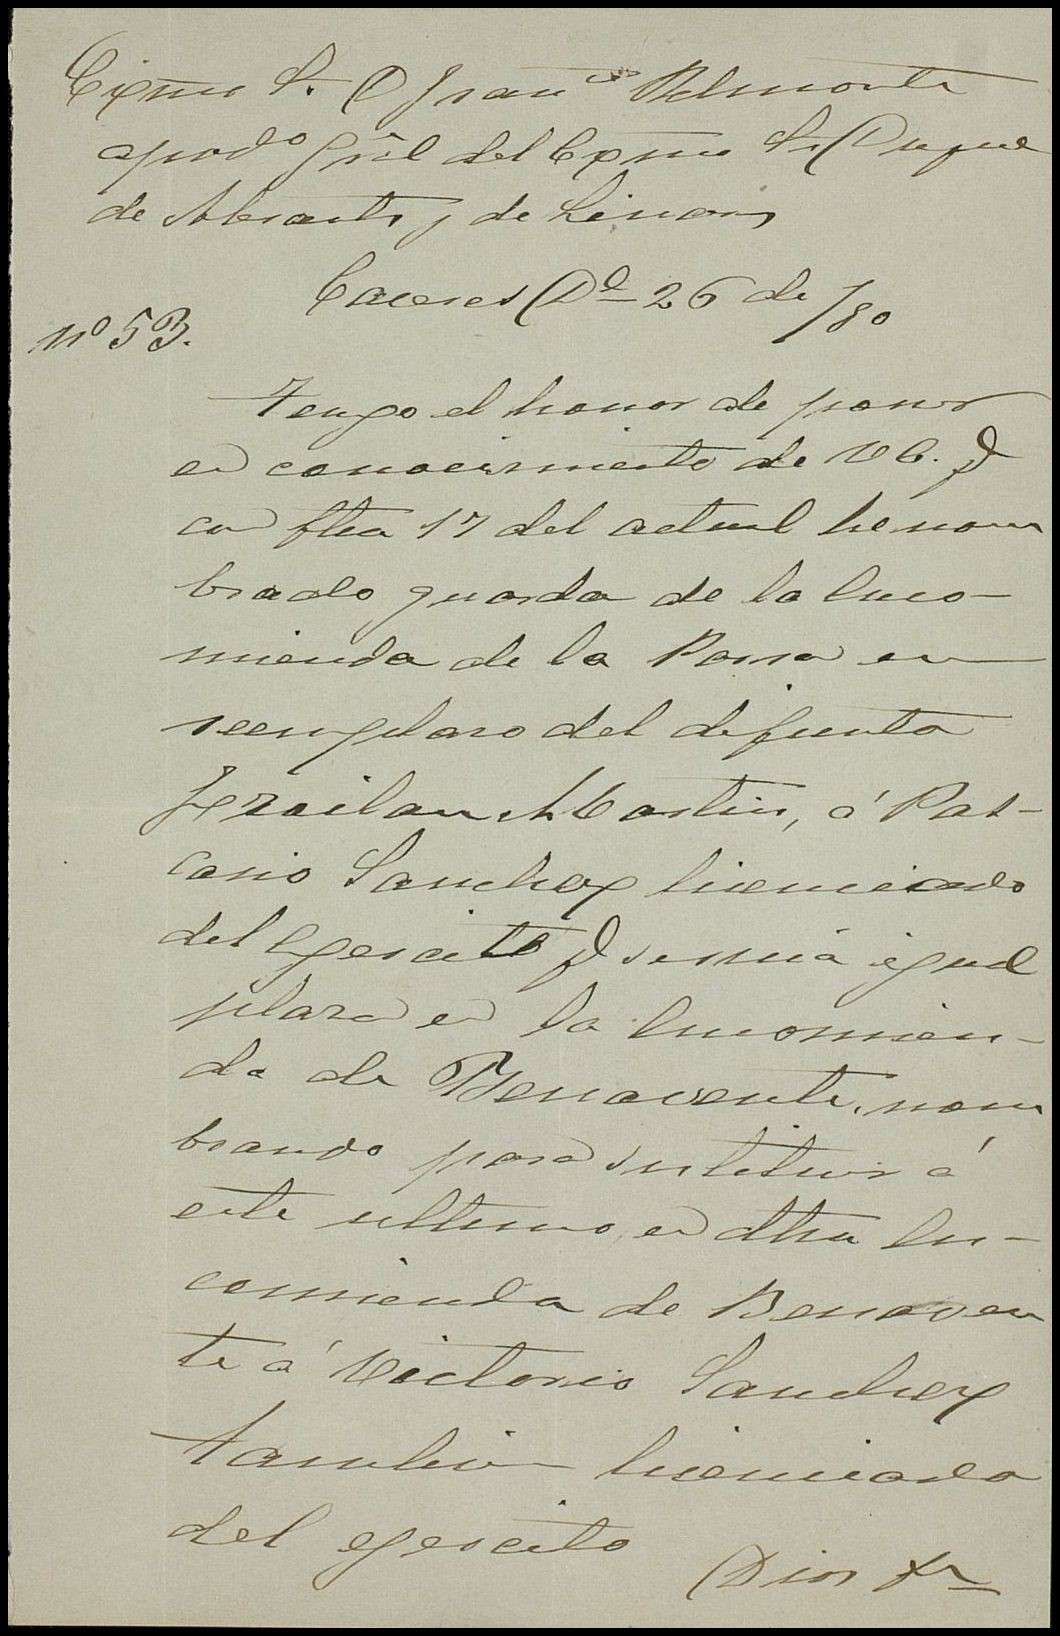 Exmo Sr. D Franco Belmonte
apodo gral del Exmo Sr Duque
de Abrantes y de Linares
Caceres Do 26 de /80
No 53.
Tengo el honor de poner
en conocimiento de V E. q
con fha 17 del actual he nom
brado guarda de la Enco-
mienda de la en
reemplazo del difunto
Froilan Martin, á Pas-
casio Sanchez licenciado
del Egercito q servia igual
plaza en la Encomien-
da de Benavente, nom
brando para sustituir á
este ultimo, en dha En-
comienda de Benaven
te á Victorio Sanchez
tambien licenciado
del egercito
Dios &a